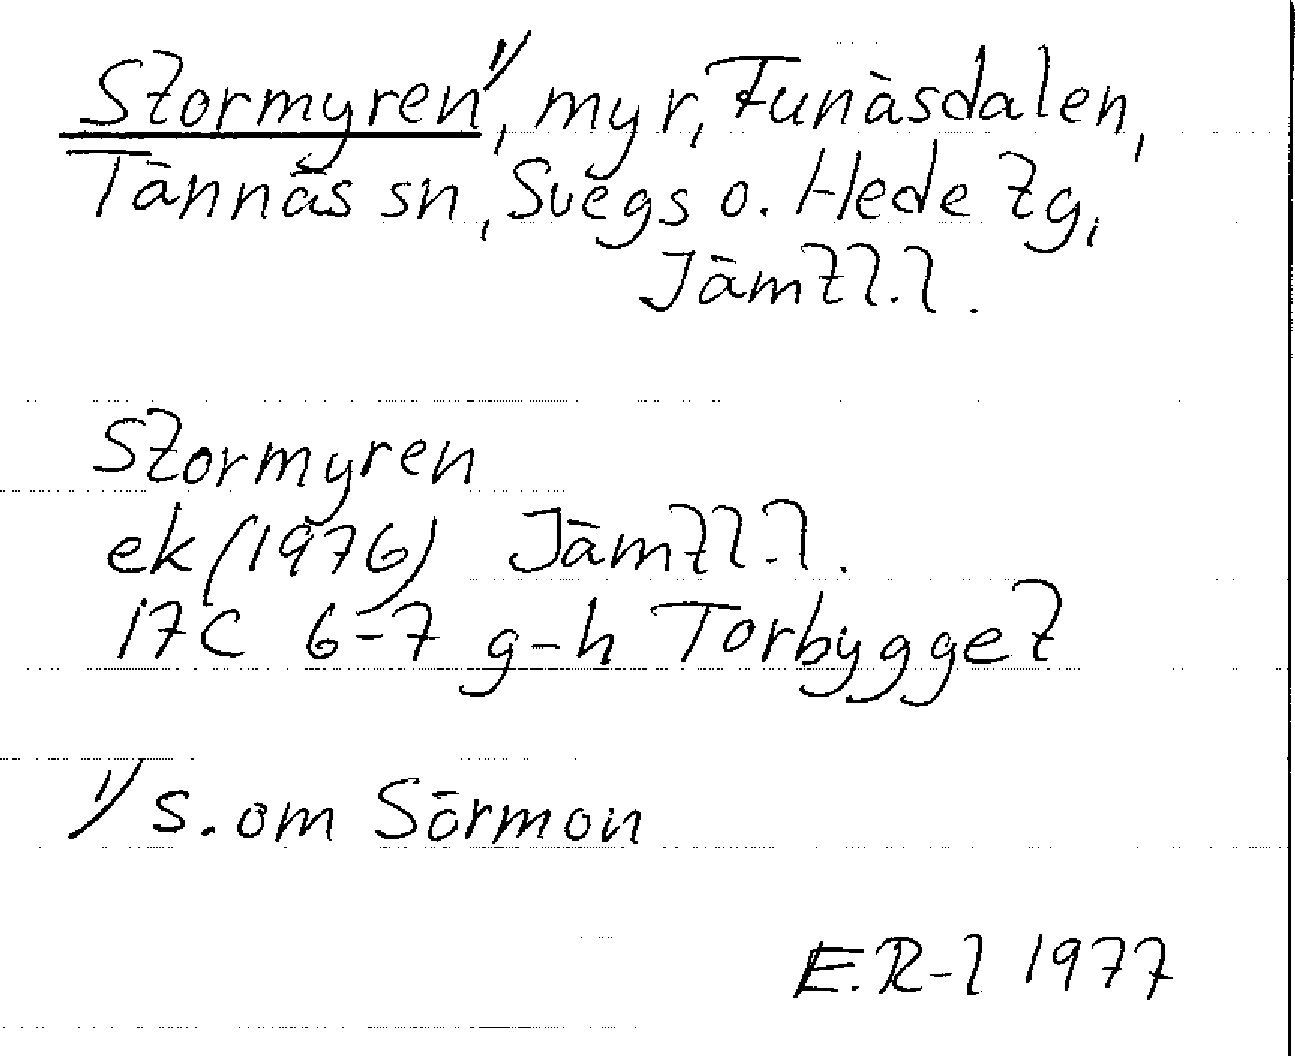 Stormyren 1), myr, Funäsdalen,
Tännäs sn, Svegs o. Hede tg,
Jämtl.l.
Stormyren
ek (1976) Jämtl.l.
17C 6-7 g-h Torbygget
1) s. om Sörmon
E.R-l 1977